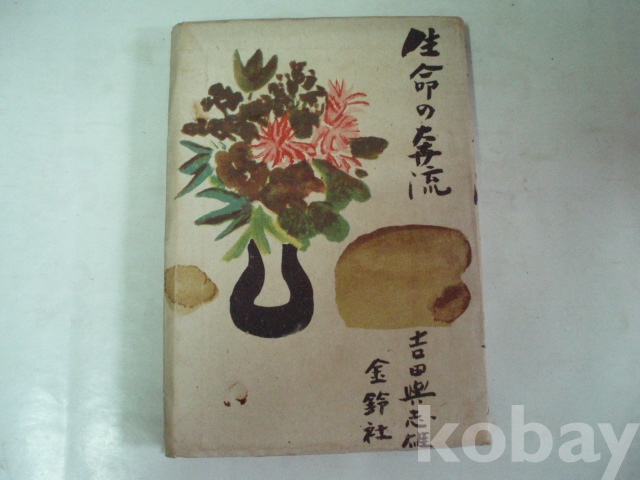 生命の奔流
吉田與志雄
金鈴社
kobay